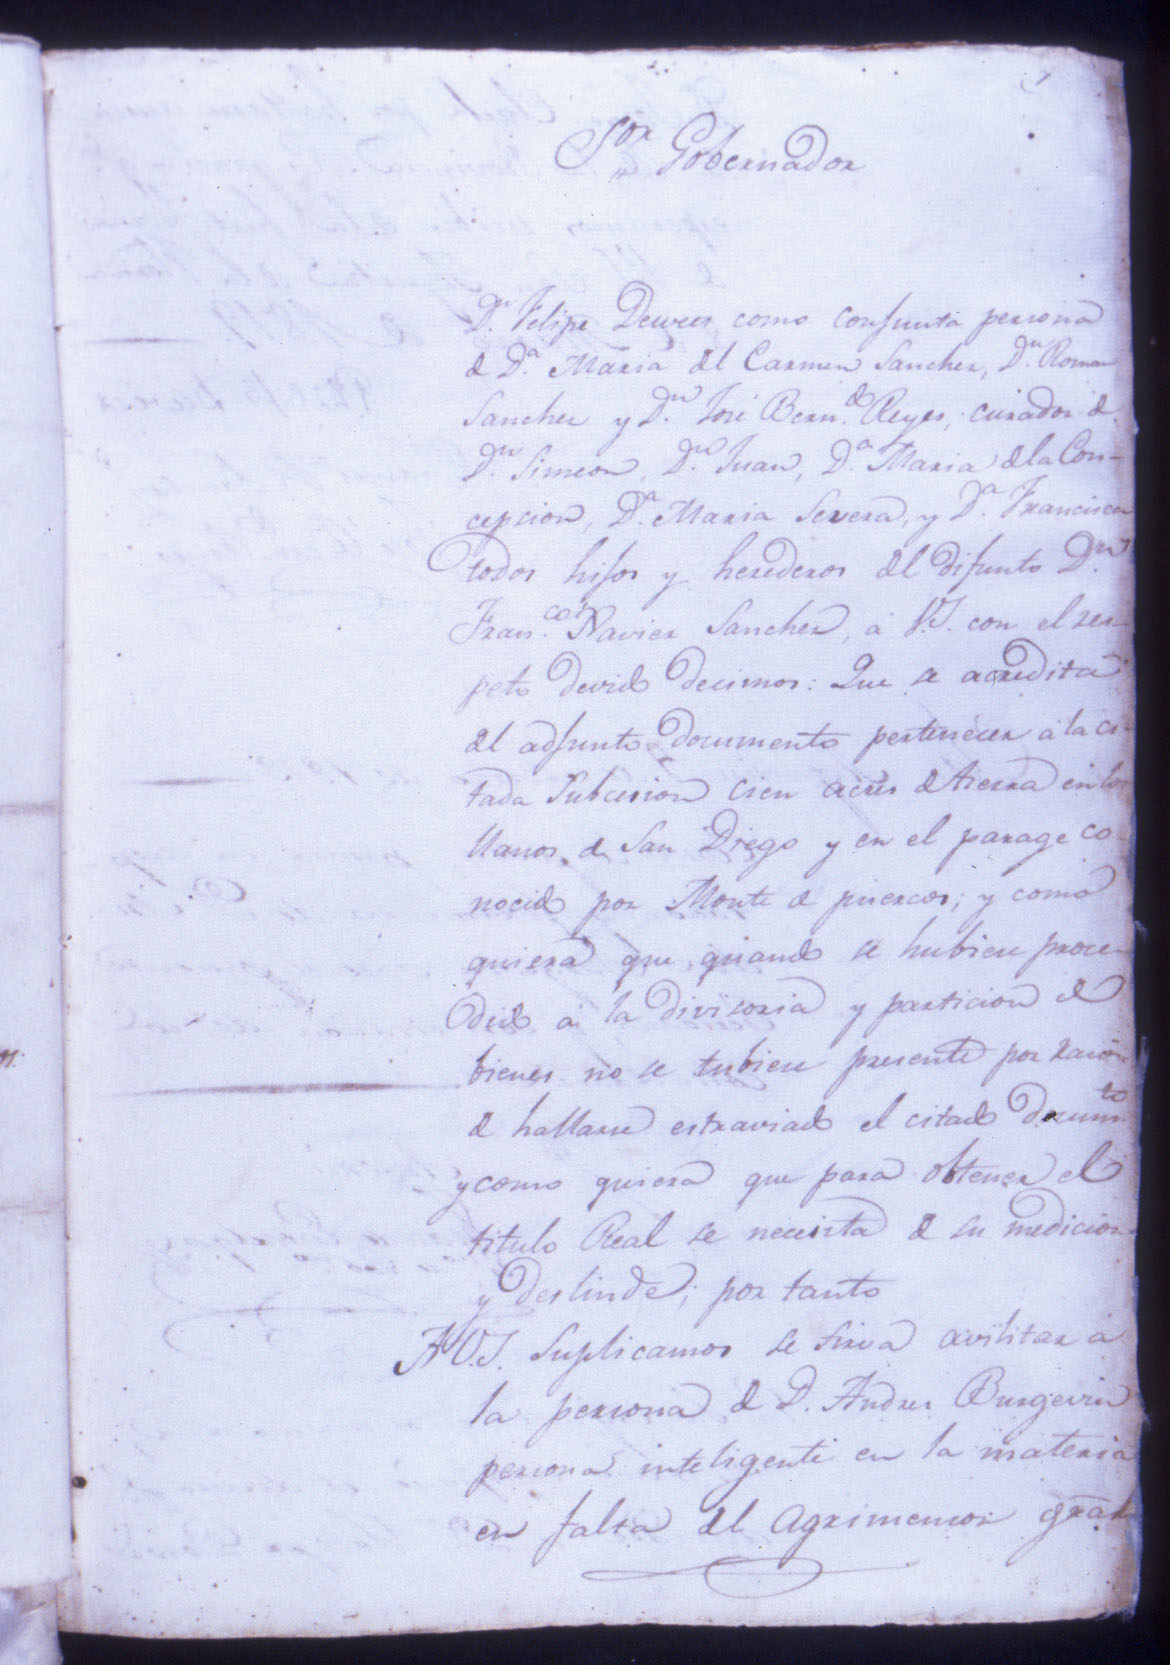 1
Sor Gobernador
Dn. Felipe Dewees como conjunta persona
de Da. Maria del Carmen Sanchez, Dn. Roman
Sanchez y Dn. José Bern.do Reyes, curador de
Dn. Simeon, Dn. Juan, Da. Maria de la Con-
cepcion, Da. Maria Severa, y Da. Francisca
todos hijos y herederos del difunto Dn.
Fran.co Xavier Sanchez, á V.S. con el res-
peto devido decimos: Que se acredita
del adjunto documento pertenecer á la ci-
tada Subcesion cien acres de tierra en los
llanos de San Diego y en el parage co-
nocido por Monte de puercos; y como
quiera que quando se hubiese proce-
dido á la divisoria y particion de
bienes no se tubiese presente por razon
de hallarse estraviado el citado documto.
y como quiera que para obtener el
titulo Real se necesita de su medicion
y deslinde; por tanto
A V.S. Suplicamos se sirva avilitar á
la persona de D. Andres Burgevin
persona inteligente en la materia
en falta del Agrimensor gral